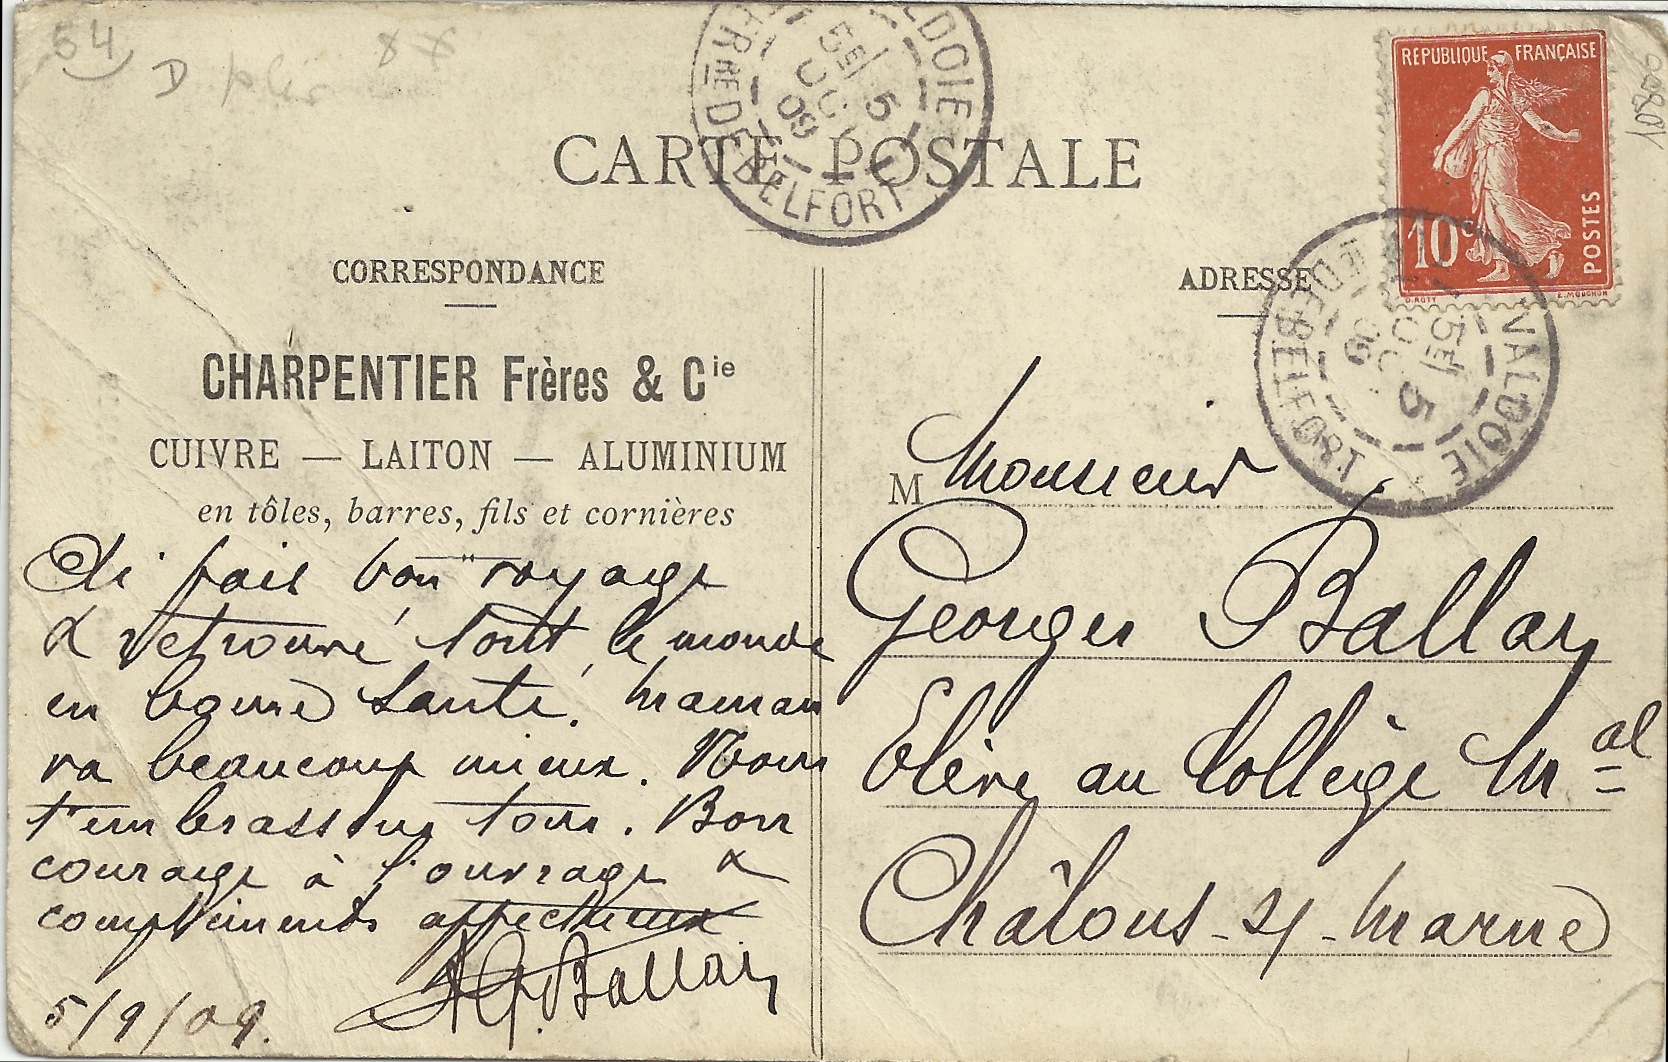 54
D plis
10809
REPUBLIQUE FRANÇAISE
10c
POSTES
O. ROTY
E. MOUCHON
VALDOIE
TERRre DE BELFORT
5E/
5
OC
09
VALDOIE
DE BELFORT
5E/
5
OC
09
CARTE POSTALE
CORRESPONDANCE
CHARPENTIER Frères & Cie
CUIVRE — LAITON — ALUMINIUM
en tôles, barres, fils et cornières
Ai fait bon voyage
& retrouvé tout le monde
en bonne santé. Maman
va beaucoup mieux. Nous
t'embrassons tous. Bon
courage à l'ouvrage &
compliments affectueux
Ballay
5/9/09.
ADRESSE
M Monsieur
Georges Ballay
Elève au Collège Mal
Châlons-s/-Marne